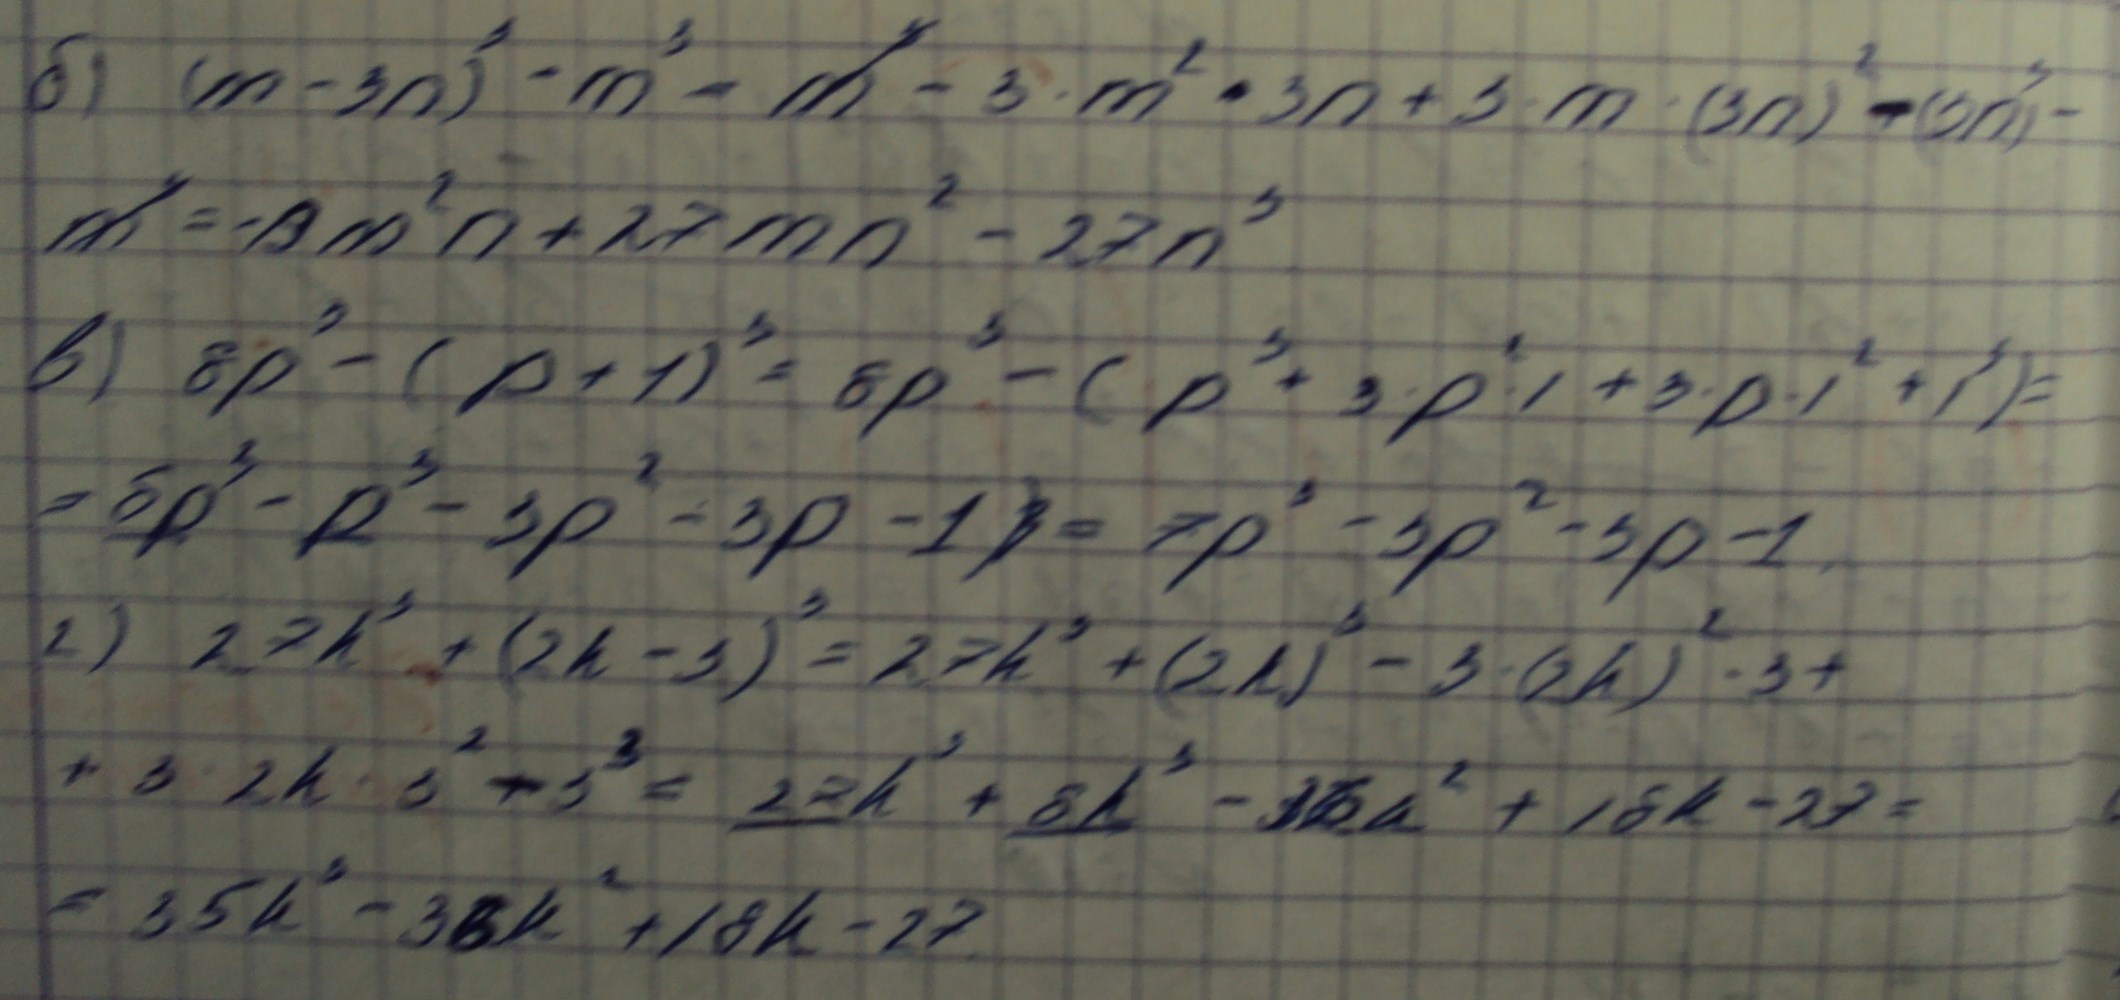 б) (m-3n)³-m³=m³-3·m²·3n+3·m·(3n)²-(3n)³-
m³=-9m²n+27mn²-27n³
в) 8p³-(p+1)³=8p³-(p³+3·p²·1+3·p·1²+1³)=
=8p³-p³-3p²-3p-1=7p³-3p²-3p-1
г) 27k³+(2k-3)³=27k³+(2k)³-3·(2k)²·3+
+3·2k·3²-3³=27k³+8k³-36k²+18k-27=
=35k³-36k²+18k-27